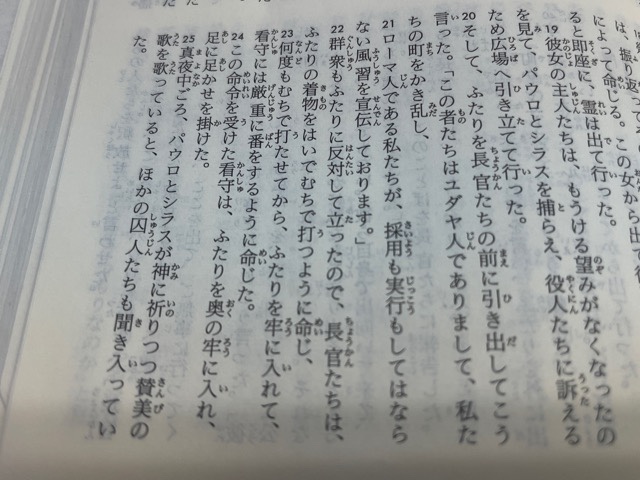 は、振り返って
によって命じる。この女から出て
ると即座に、霊は出て行った。
19 彼女の主人たちは、もうける望みがなくなったの
を見て、パウロとシラスを捕らえ、役人たちに訴える
ため広場へ引き立てて行った。
20 そして、ふたりを長官たちの前に引き出してこう
言った。「この者たちはユダヤ人でありまして、私た
ちの町をかき乱し、
21 ローマ人である私たちが、採用も実行もしてはなら
ない風習を宣伝しております。」
22 群衆もふたりに反対して立ったので、長官たちは、
ふたりの着物をはいでむちで打つように命じ、
23 何度もむちで打たせてから、ふたりを牢に入れて、
看守には厳重に番をするように命じた。
24 この命令を受けた看守は、ふたりを奥の牢に入れ、
足に足かせを掛けた。
25 真夜中ごろ、パウロとシラスが神に祈りつつ賛美の
歌を歌っていると、ほかの囚人たちも聞き入ってい
た。